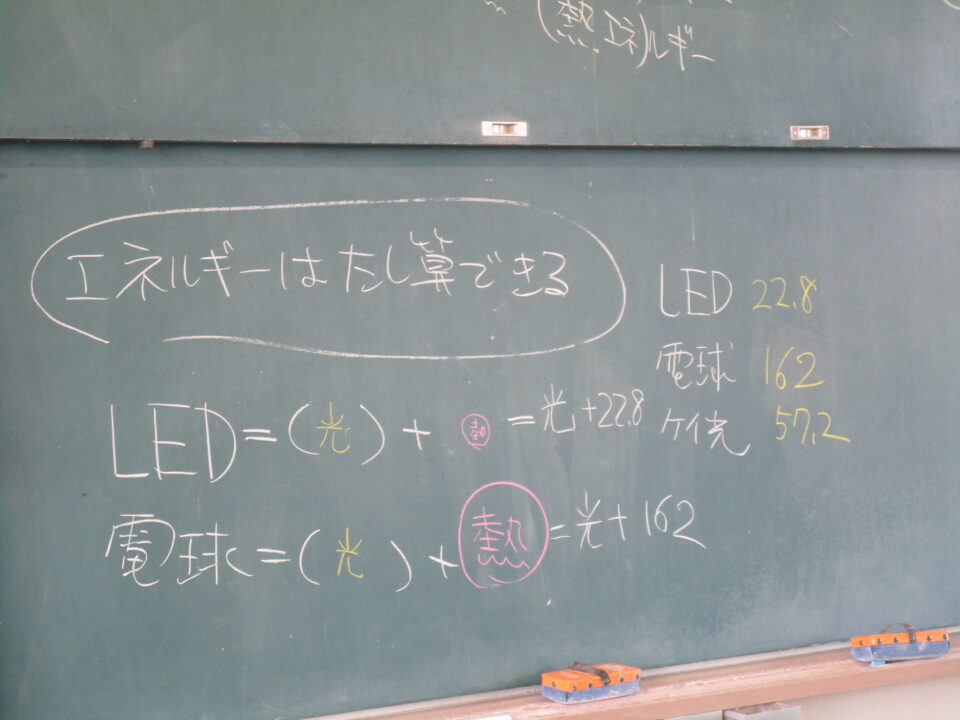 (熱エネ)ルギー
エネルギーはたし算できる
LED 22.8
電球 162
ケイ光 57.2
LED=(光)+熱=光+22.8
電球=(光)+熱=光+162